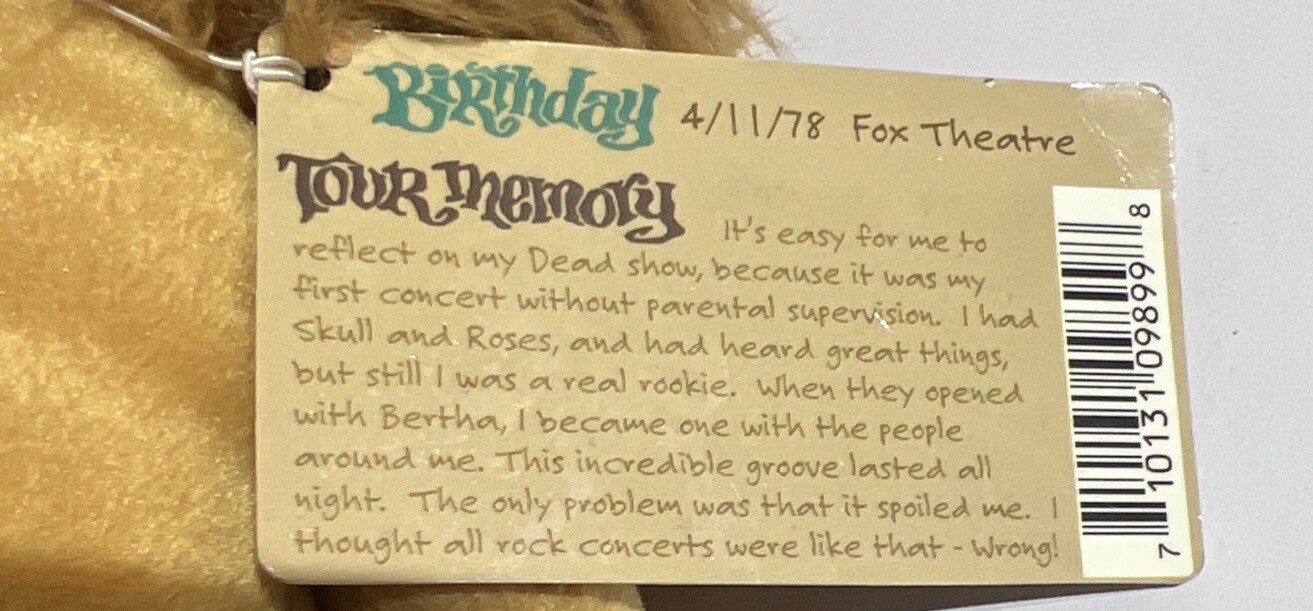 Birthday 4/11/78 Fox Theatre
Tour Memory It's easy for me to
reflect on my Dead show, because it was my
first concert without parental supervision. I had
Skull and Roses, and had heard great things,
but still I was a real rookie. When they opened
with Bertha, I became one with the people
around me. This incredible groove lasted all
night. The only problem was that it spoiled me. I
thought all rock concerts were like that - Wrong!
7 10131 09899 8